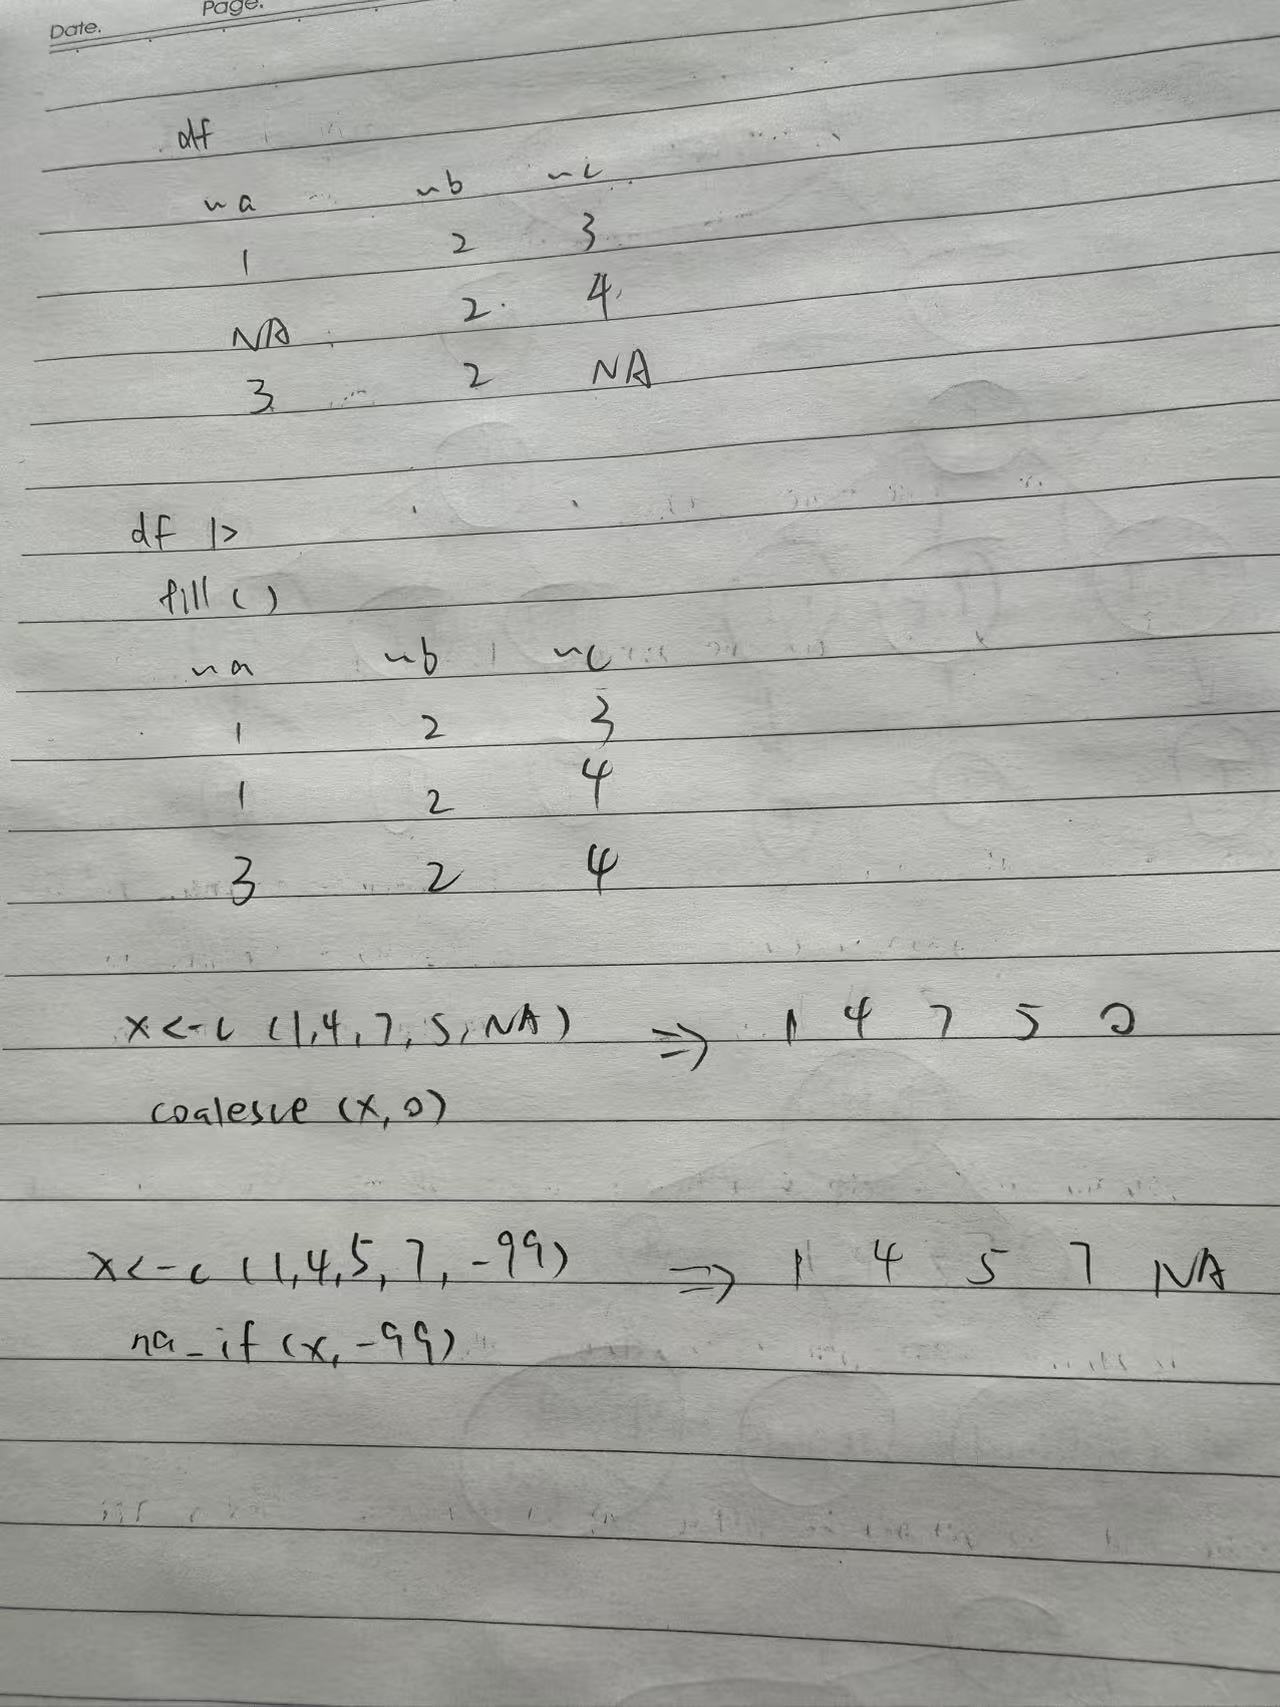 Page.
Date.
df
na nb nc
1 2 3
NA 2 4
3 2 NA
df |>
fill ()
na nb nc
1 2 3
1 2 4
3 2 4
x<-c (1,4,7,5,NA) => 1 4 7 5 0
coalesce (x,0)
x<-c (1,4,5,7,-99) => 1 4 5 7 NA
na_if (x,-99)